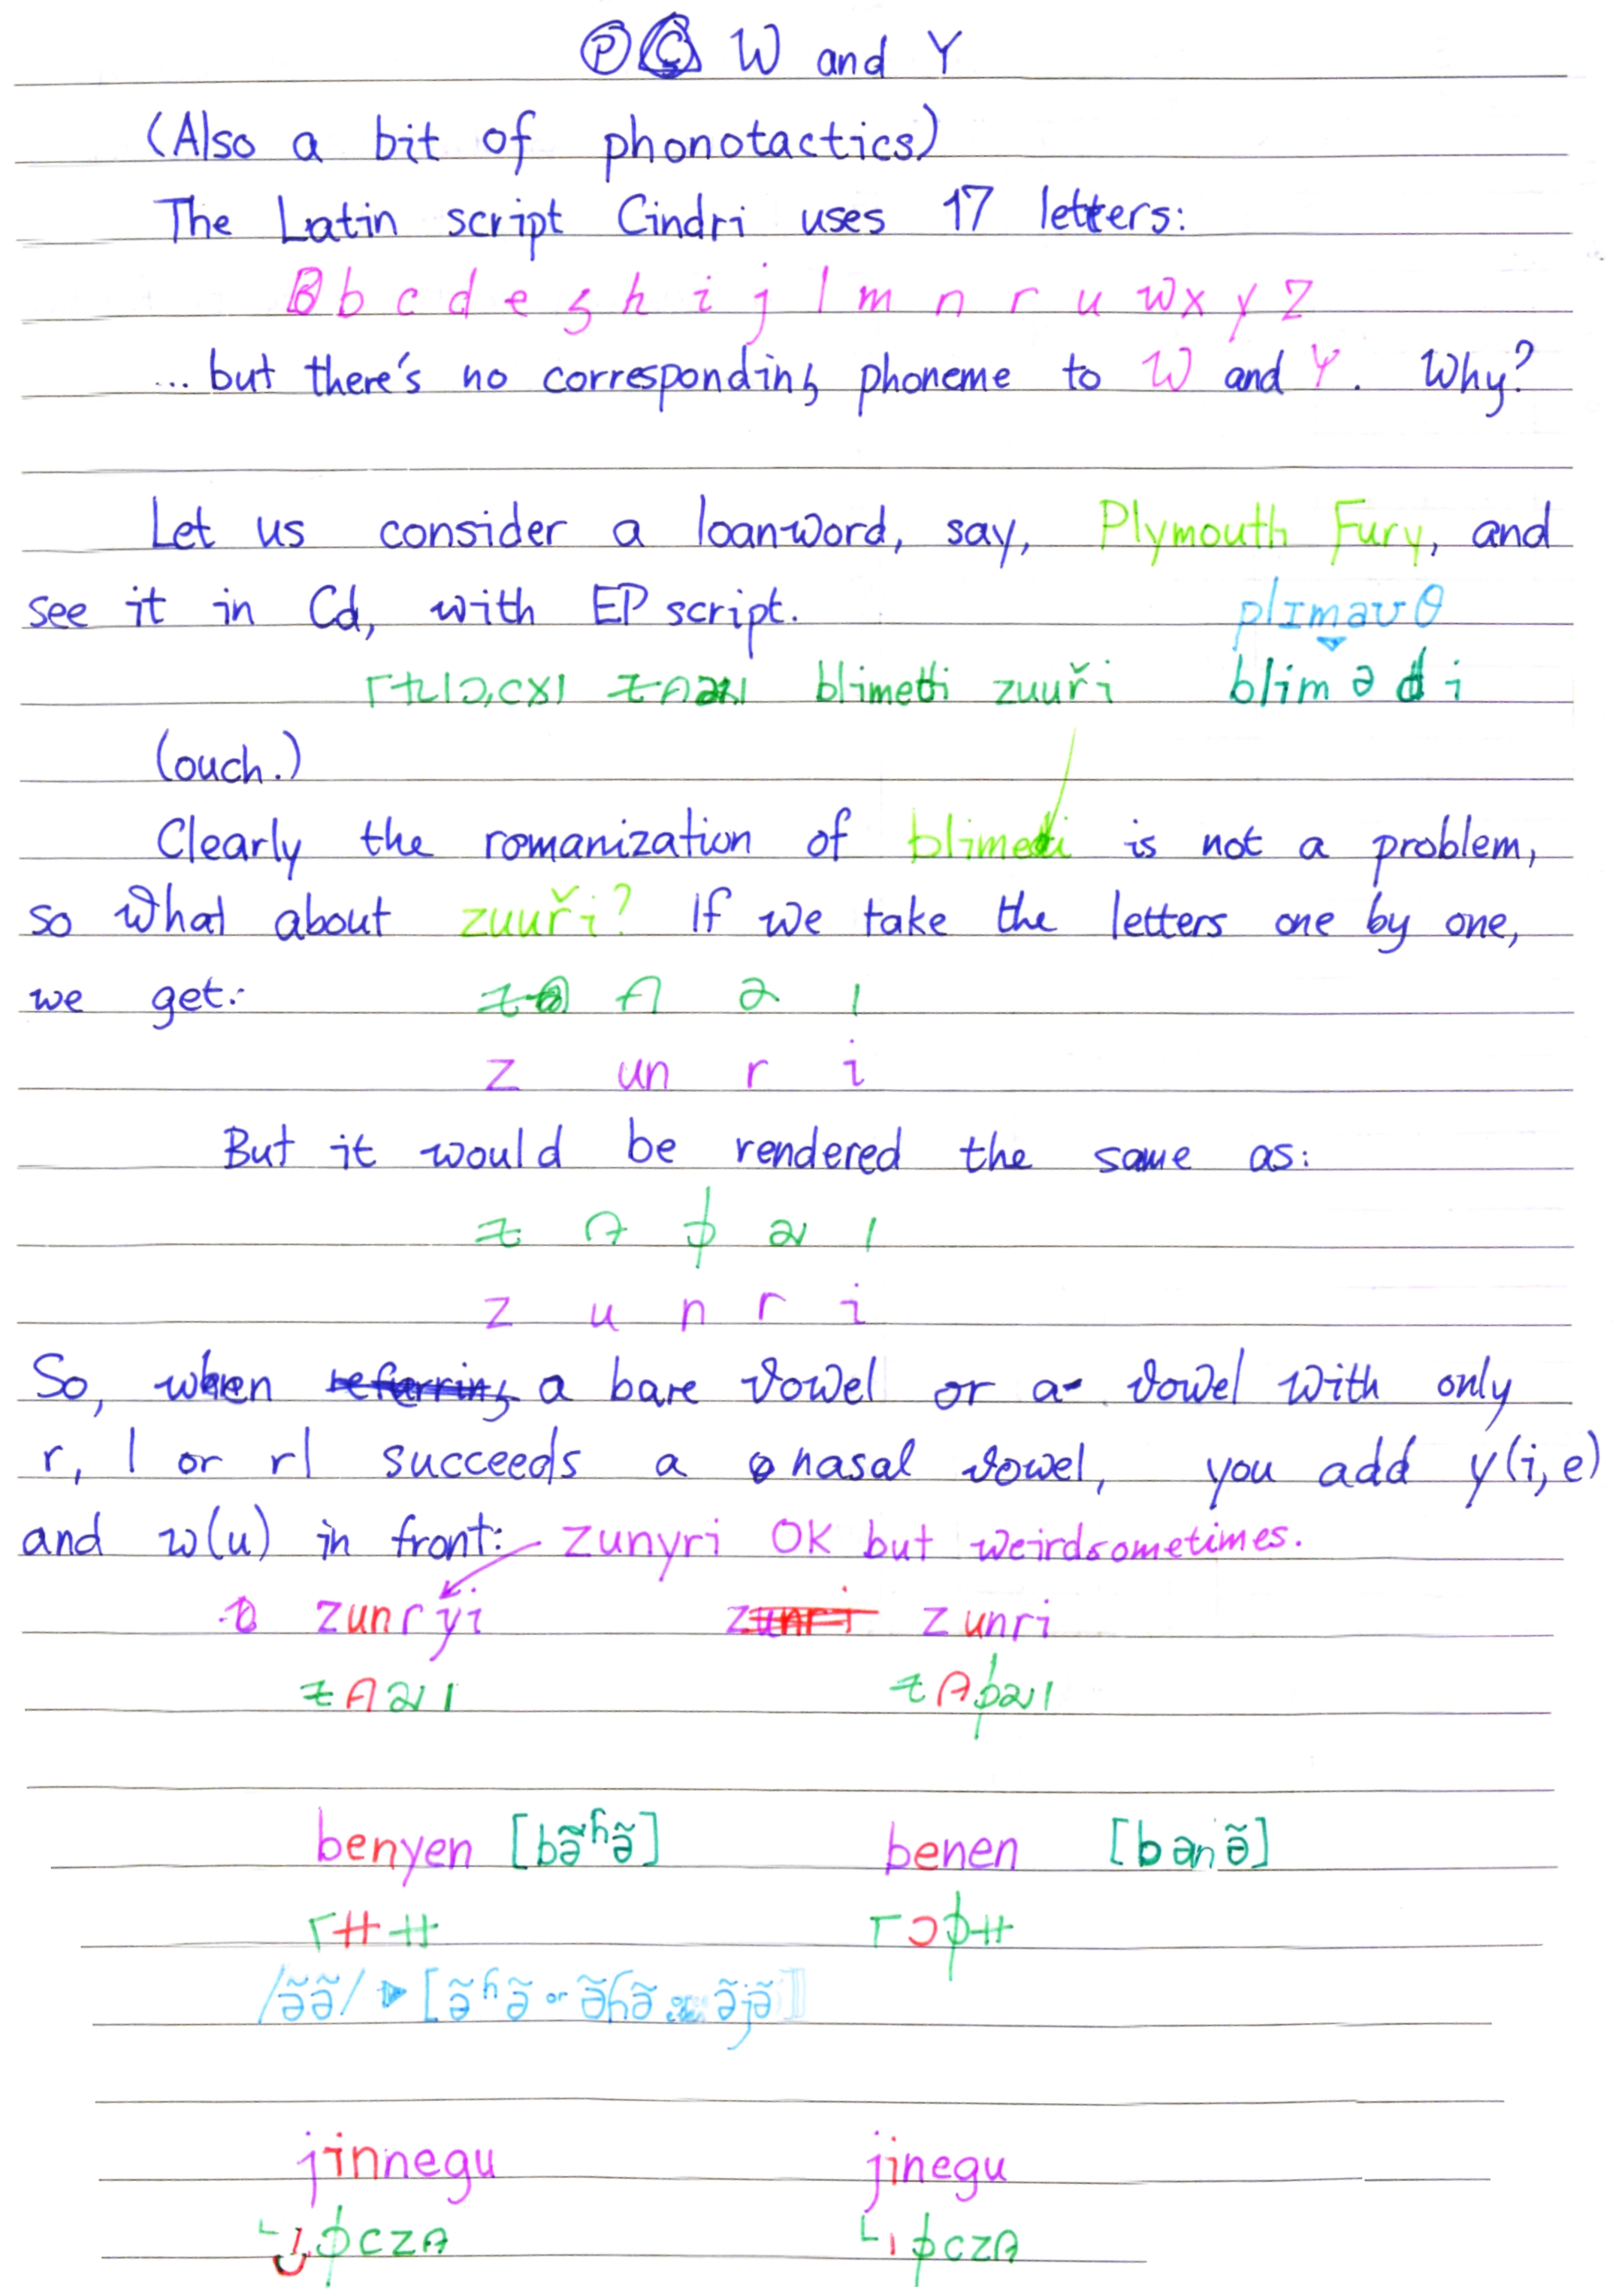 Ⓟ Ⓒ W and Y
(Also a bit of phonotactics)
The Latin script Cindri uses 17 letters:
b c d e g h i j l m n r u w x y z
... but there's no corresponding phoneme to W and Y. Why?
Let us consider a loanword, say, Plymouth Fury, and
see it in Cd, with EP script. plɪmaʊθ
blimedi zuuři blimədi
(ouch.)
Clearly the romanization of blimedi is not a problem,
so what about zuuři? If we take the letters one by one,
we get:
z un r i
But it would be rendered the same as:
z u n r i
So, when a bare vowel or a vowel with only
r, l or rl succeeds a nasal vowel, you add y(i,e)
and w(u) in front: zunyri OK but weird sometimes.
zunryi zunri
benyen [bə̃ʱə̃] benen [bənə̃]
/ə̃ə̃/ ▶ [ə̃ʱə̃ or ə̃ɦə̃ or ə̃jə̃]
jinnegu jinegu